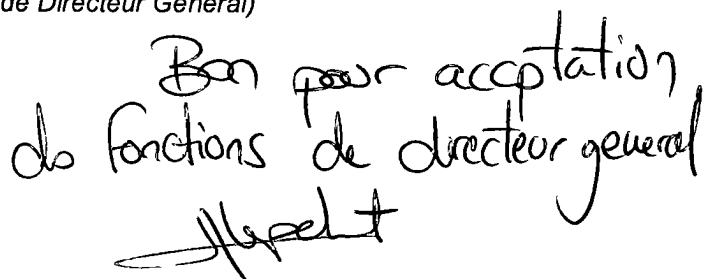 de Directeur Général)
Bon pour accptation
ds fonctions de directeur general